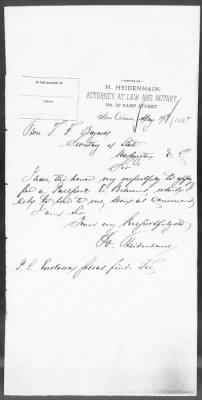 IN THE MATTER OF
OFFICE OF
H. HEIDENHAIN,
ATTORNEY AT LAW AND NOTARY
No. 20 CAMP STREET.
New Orleans, May 188
Hon. T F Bayard
Secretary of State
Washington D. C.
Sir
I have the honor very respectfully to apply
for a Passport
Sent to me, soon as convenient
I am Sir
Yours very Respectfully
H. Heidenhain
P. S. Enclosed please find